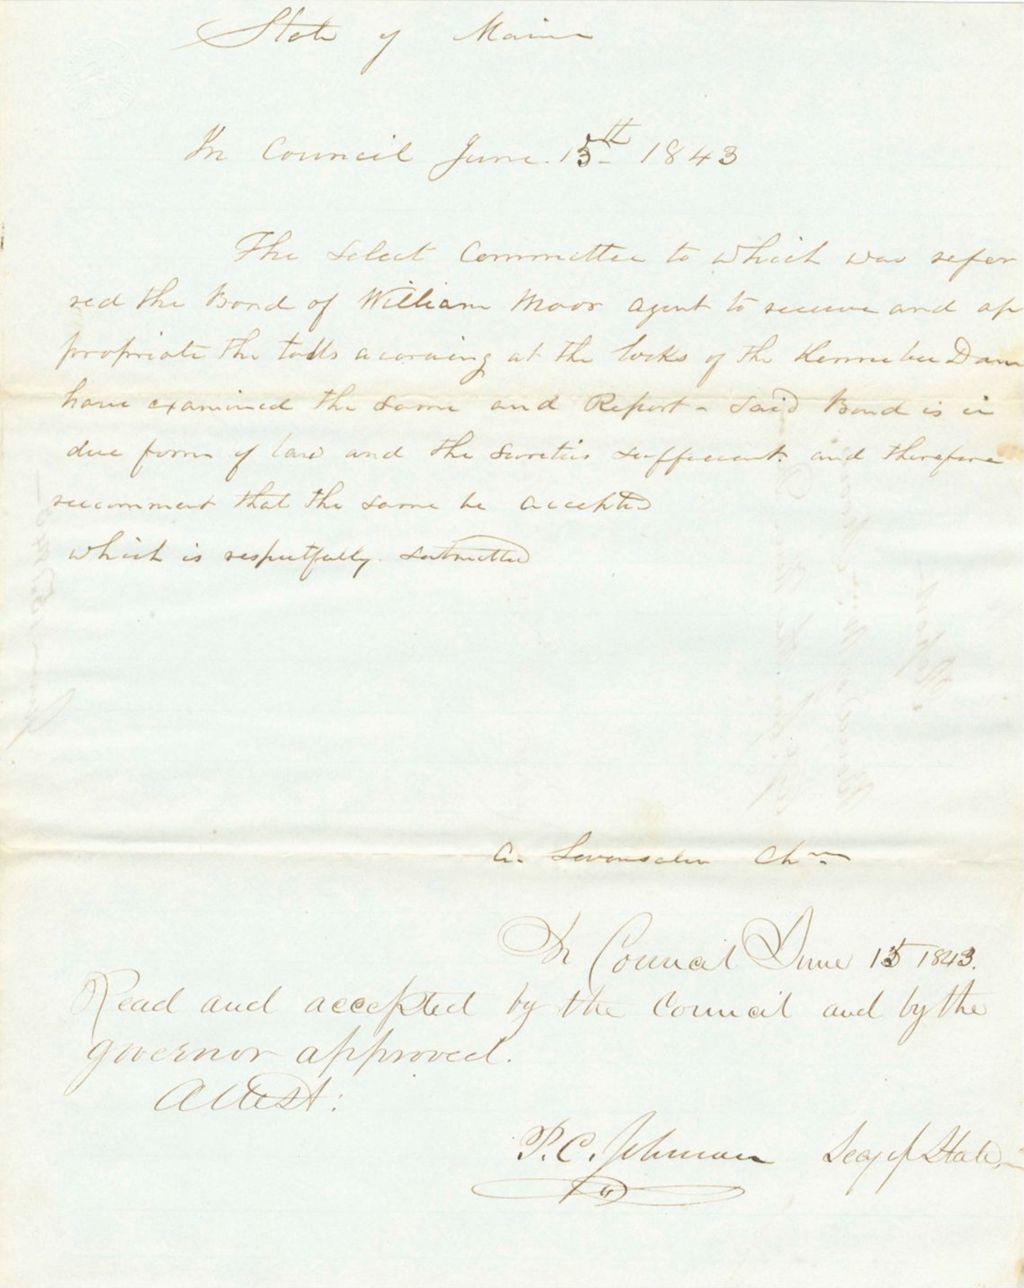 State of Maine
In Council June 15th 1843
The Select Committee to which was refer
red the Bond of William Moor agent to receive and ap
propriate the tolls accruing at the locks of the Kennebec Dam
have examined the same and Report - Said Bond is in
due form of law and the Sureties sufficient and therefore
recommend that the same be accepted
which is respectfully submitted
A. Chn
In Council June 15 1843.
Read and accepted by the Council and by the
governor approved.
Attest:
P. C. Johnson Secy of State